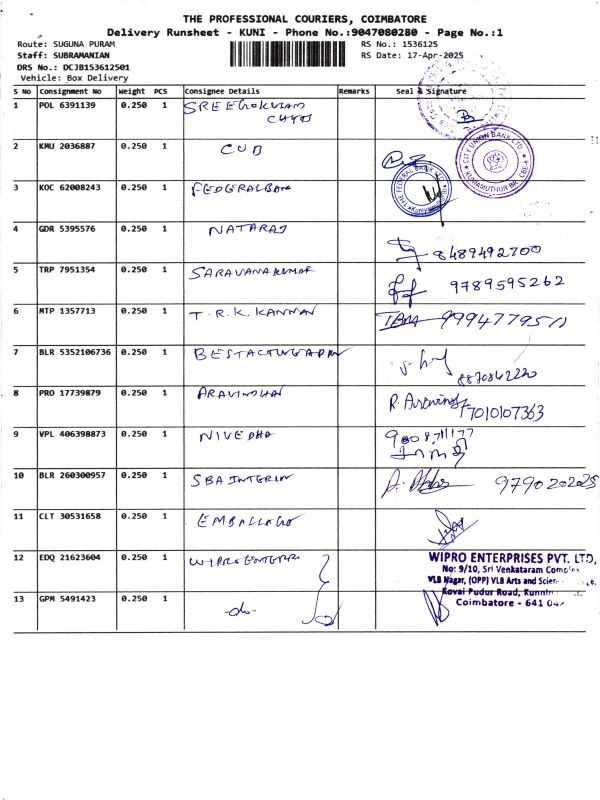 THE PROFESSIONAL COURIERS, COIMBATORE
Delivery Runsheet - KUNI - Phone No.:9047080280 - Page No.:1
Route: SUGUNA PURAM
RS No.: 1536125
Staff: SUBRAMANIAN
RS Date: 17-Apr-2025
DRS No.: DCJB153612501
Vehicle: Box Delivery
S No Consignment No Weight PCS Consignee Details Remarks Seal & Signature
1 POL 6391139 0.250 1 SREEGOKULAM
2 KMU 2036887 0.250 1 CUB
CITY UNION BANK LTD.
KUNIAMUTHUR BR. CBE-8
3 KOC 62008243 0.250 1 FEDERALBANK
THE FEDERAL BANK LTD
4 GDR 5395576 0.250 1 NATARAJ
8489492700
5 TRP 7951354 0.250 1 SARAVANAKUMAR
9789595262
6 MTP 1357713 0.250 1 T.R.K. KANNAN
7 BLR 5352106736 0.250 1
8870842220
8 PRO 17739879 0.250 1 ARAVINDHAN
7010107363
9 VPL 406398873 0.250 1 NIVEDHA
10 BLR 260300957 0.250 1 SBA INTERIOR
11 CLT 30531658 0.250 1
12 EDQ 21623604 0.250 1 WIPRO ENTERPR
WIPRO ENTERPRISES PVT. LTD,
No: 9/10, Sri Venkataram Complex
VLB Nagar, (OPP) VLB Arts and Scien
Kovai Pudur Road, Kunni
Coimbatore - 641 04
13 GPM 5491423 0.250 1 -do-